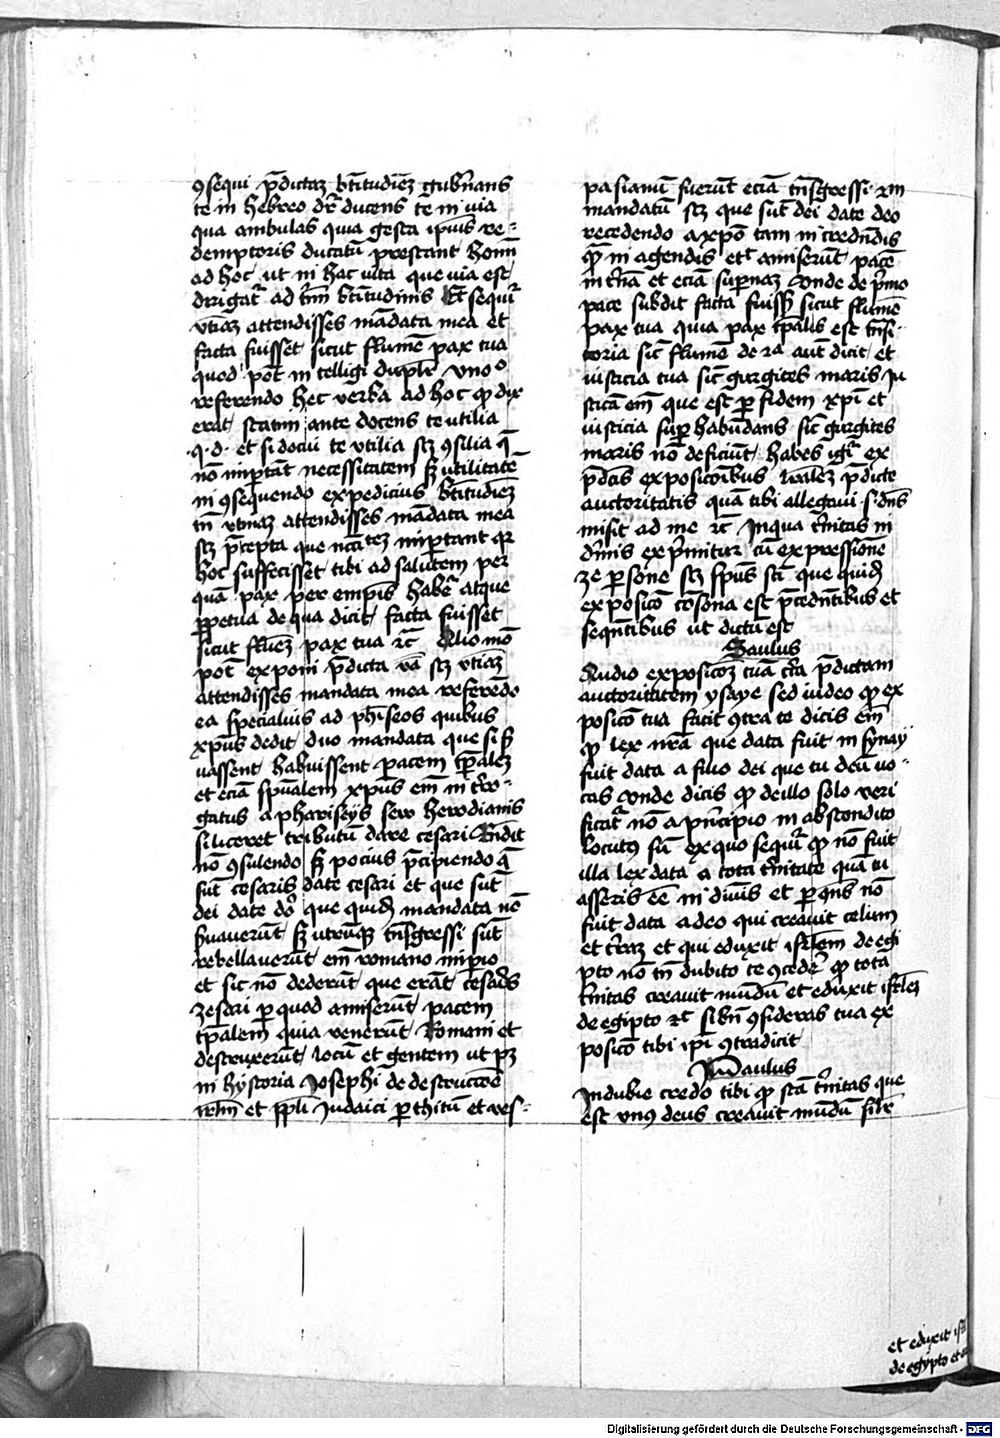 ꝯsequi p̄dictaꝫ bt̄itudiēꝫ gub̄nans
te in hebreo dr̄ ducens te in via
qua ambulas quia gesta ip̄ius re-
demptoris ducatū prestant homī
ad hoc ut in hac vita que via est
dirigat᷑ ad t̄m̄ bt̄itudinis Et sequit᷑
vtinaꝫ attendisses mādata mea et
facta fuisset sicut flumē pax tua
quod pōt intelligi dupl̄r vno°
referendo hec verba ad hoc ꝙ dix
erat statim ante docens te utilia
·q·d· et si docui te vtilia sꝫ ꝯsilia q̄
nō īmportāt necessitatem sꝫ utilitatē
in ꝯsequendo expedicius bt̄itudiēꝫ
tn̄ vtinaꝫ attendisses mādata mea
sꝫ p̄cepta que nc̄c̄itateꝫ important qꝛ
hoc suffecisset tibi ad salutem per
quā pax per empūs haber̄ atque
ꝑpetua de qua dicit facta fuisset
sicut flūeꝫ pax tua ⁊c̄ Alio mō
pōt exponi p̄dicta v̄a sꝫ vtinaꝫ
attendisses mandata mea referēdo
ea specialius ad ph̄iseos quibus
xp̄us dedit duo mandata que si ẜ
uassent habuissent pacem tp̄aleꝫ
et eciā sp̄ualem xpūs em̄ int̄ro-
gatus a phariseijs seu herodianis
si liceret tributū dare cesari R̄ndit
nō ꝯsulendo sꝫ pocius p̄cipiendo q̄
sūt cesaris date cesari et que sūt
dei date do° que quidē mandata nō
ẜuauerūt sꝫ utrūqꝫ tn̄sgressi sūt
rebellauerūt em̄ romano impio
et sic nō dederūt que erāt cesaris
zesari ꝑ quod amiserūt pacem
tp̄alem quia venerūt Romani et
destruxerūt locū et gentem ut pꝫ
in hystoria Josephi de destructōe
ir̄lm̄ et pp̄li Judaici ꝑ thitū et ves-
pasianū fuerūt eciā tn̄sgressi ⁊ m̄
mandatū sꝫ que sūt dei date deo
recedendo a xp̄o tam in credn̄dis
qȝ in agendis et t̄ amiserūt pacē
in t̄ra et eciā supernaꝫ vnde de p̄mo
pace subdit facta fuissꝫ sicut flumē
pax tua quia pax tp̄alis est tn̄si-
toria sic̄ flumē de 2a aut̄ dicit et
iusticia tua sic̄ gurgites maris iu
sticia em̄ que est ꝑ fidem xp̄i et
iusticia suꝑ habūdans sic̄ gurgites
maris nō deficiūt habes igr̄ ex
p̄dc̄is exposicōibus l̄r̄aleꝫ p̄dicte
auctoritatis quā tibi allegaui s· dn̄s
misit ad me ⁊c̄ In qua t̄nitas in
diuīnis exp̄mitur cū expressione
3e ꝑsone sꝫ sp̄us sc̄i que quidē
exposicō cōsona est p̄cedn̄tibus et
seqn̄tibus ut dictū est
Saulus
Audio exposicōeꝫ tuā c̄ca p̄dictam
auctoritatem ysaye sed uideo ꝙ ex
posicō tua facit ꝯtra te dicis em̄
ꝙ lex nr̄a que data fuit in synay
fuit data a filio dei que tu deū uo-
cas vnde dicis ꝙ de illo solo veri
ficat᷑ nō a p̄ncipio in abscondito
locutꝰ sū ex quo sequit᷑ ꝙ nō fuit
illa lex data a tota t̄nitate quā tu
asseris eē in diuīs et ꝑ ꝯn̄s nō
fuit data a deo qui creauit celum
et t̄raꝫ et qui eduxit isrl̄em de egi
pto nō tn̄ dubito te ꝯceder̄ ꝙ tota
t̄nitas creauit mūdū et eduxit isrl̄eꝫ
de egipto ⁊c̄ si bn̄ ꝯsideras tua ex
posicō tibi ip̄i ꝯtradicit
Paulus
Indubie credo tibi ꝙ sc̄ā t̄nitas que
est vnꝰ deus creauit mūdū sil̄r
et eduxit
de egypto et
Digitalisierung gefördert durch die Deutsche Forschungsgemeinschaft - DFG